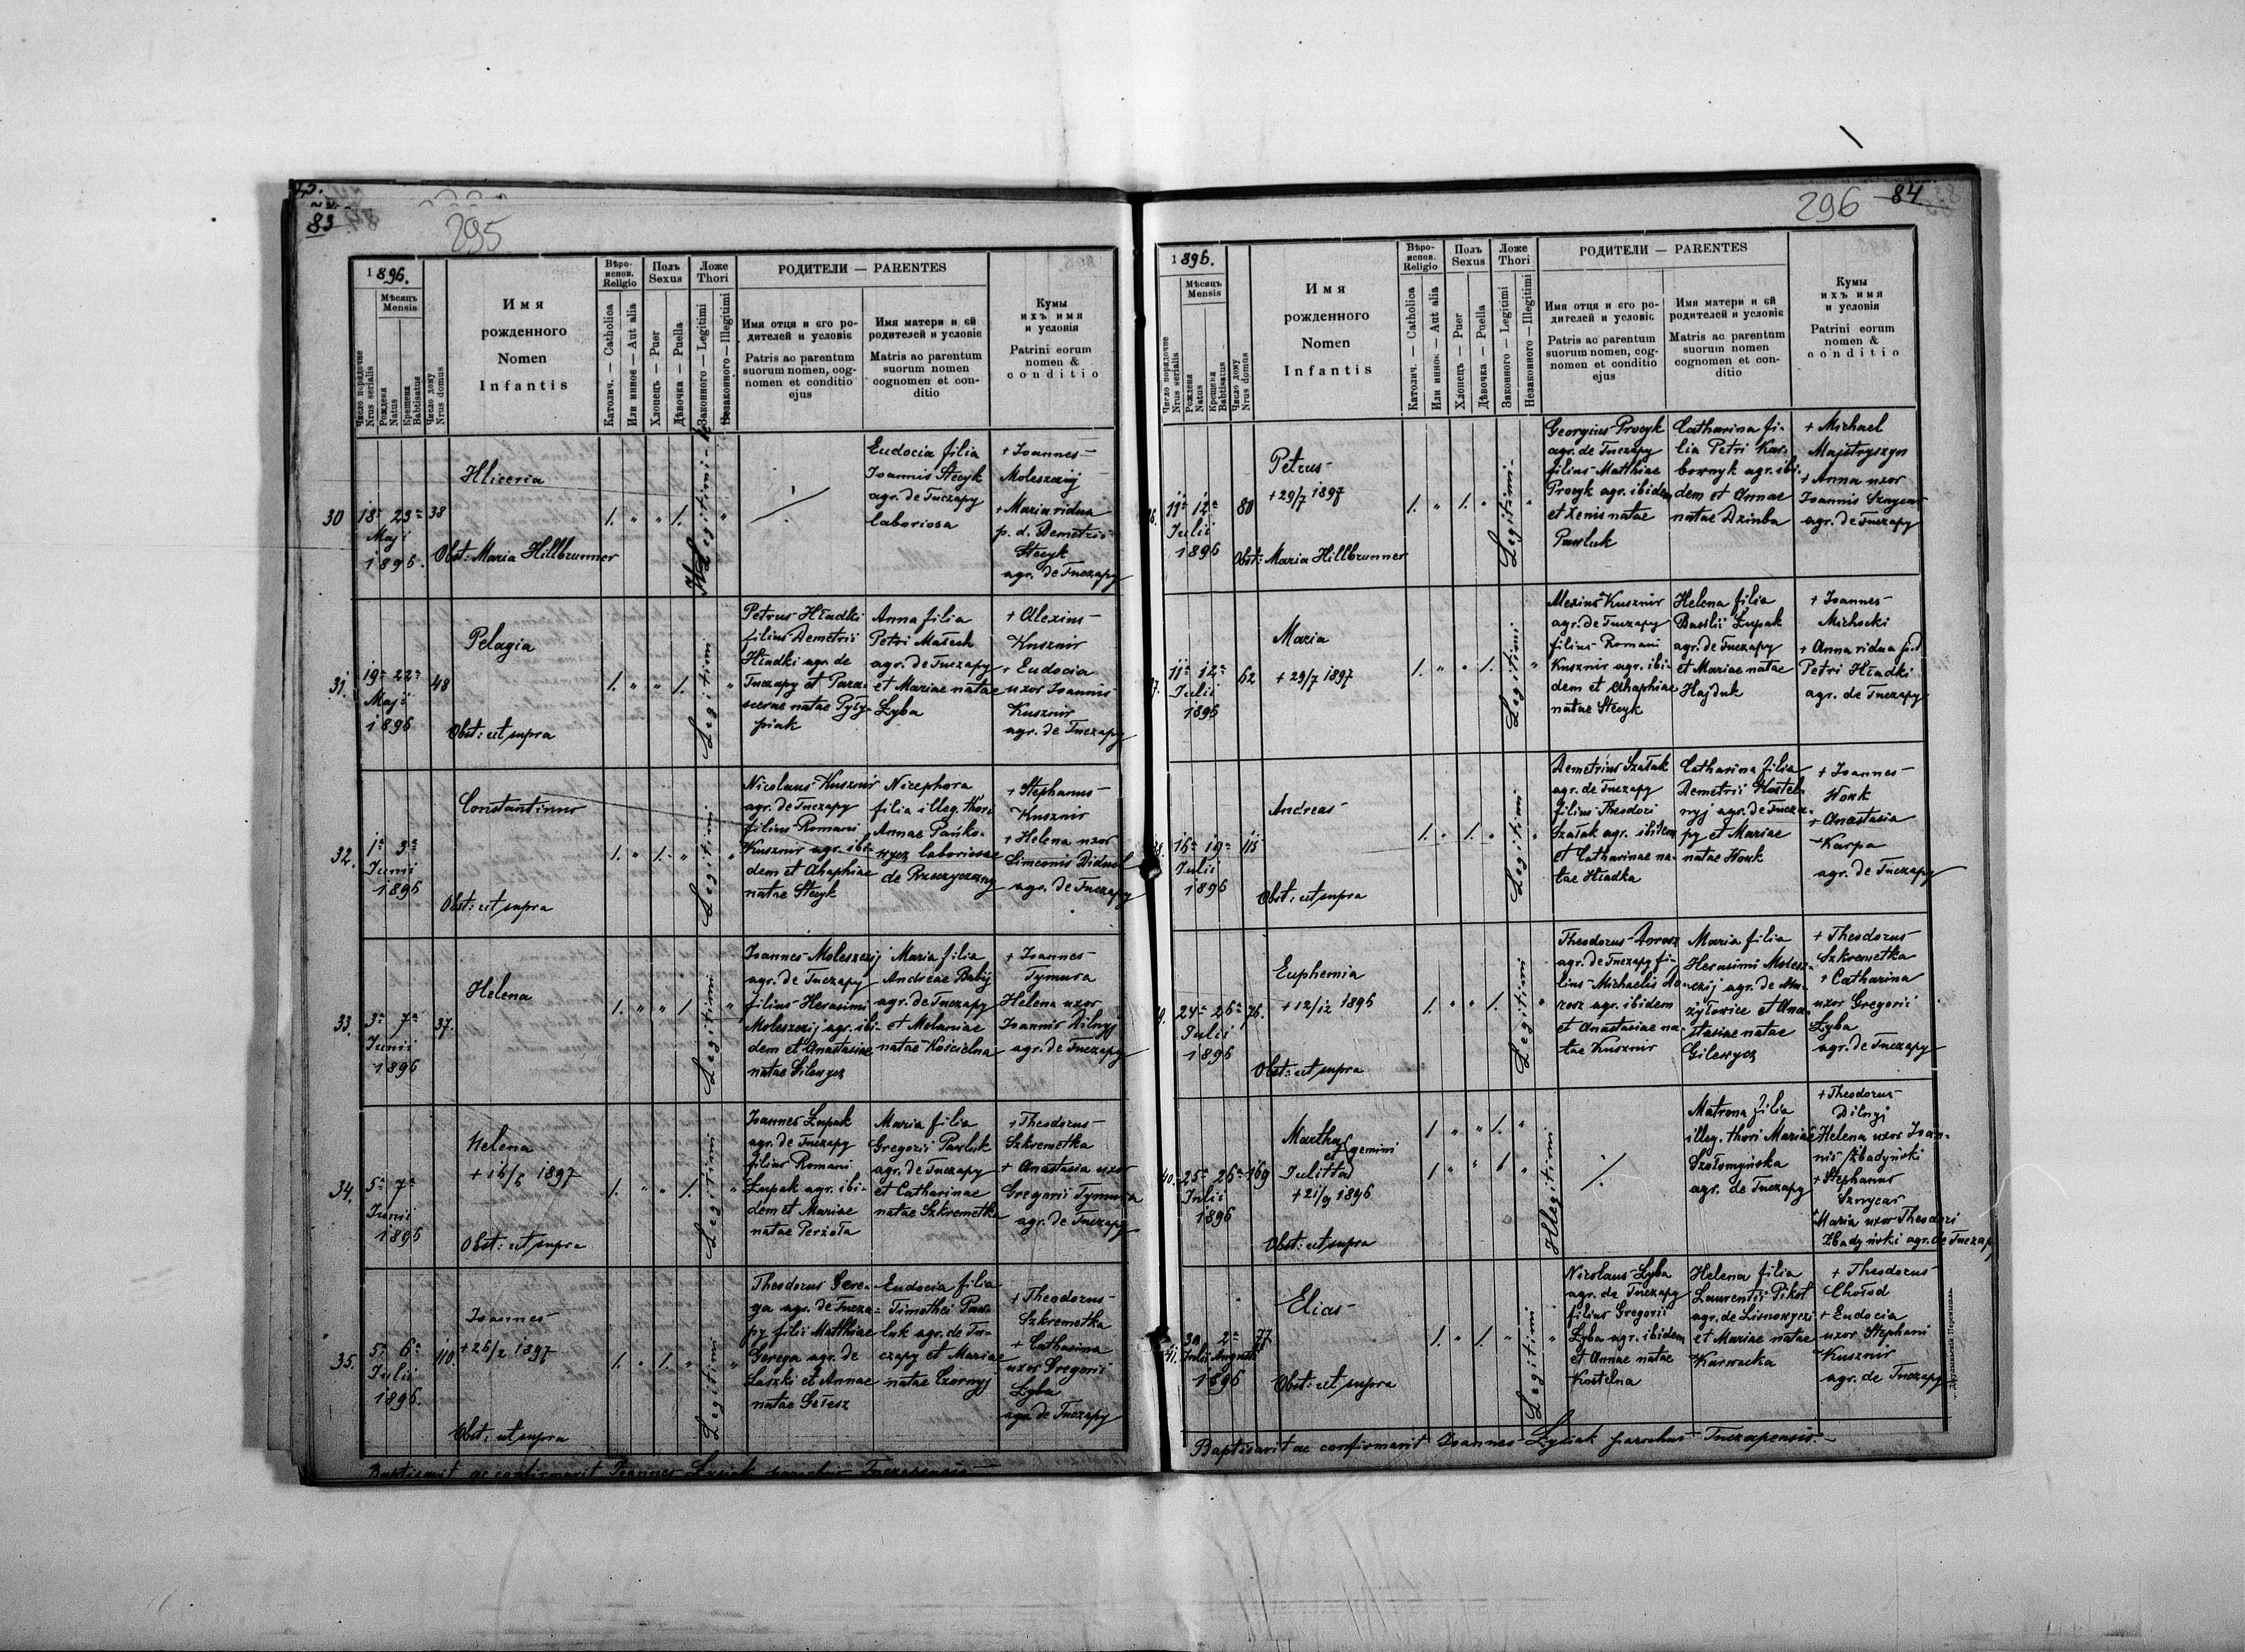 83
295
1896.
Мѣсяць
Mensis
Число порядочне
Nrus serialis
Рожденя
Natus
Крещеня
Babtisatus
Число дому
Nrus domus
Имя
рожденного
Nomen
Infantis
Вѣро-
испов.
Religio
Католич. — Catholica
Или инное — Aut alia
Полъ
Sexus
Хлопець — Puer
Дѣвочка — Puella
Ложе
Thori
Законного — Legitimi
Незаконного — Illegitimi
РОДИТЕЛИ — PARENTES
Имя отця и єго ро-
дителей и условіє
Patris ac parentum
suorum nomen, cog-
nomen et conditio
ejus
Имя матери и єй
родителей и условіє
Matris ac parentum
suorum nomen
cognomen et con-
ditio
Кумы
ихъ имя
и условія
Patrini eorum
nomen &
conditio
30 18ª 23ª 38
Maji
1896.
Hliceria
Obst: Maria Hillbrunner
1. " " 1. Illegitimi "
Eudocia filia
Joannis Stecyk
agr. de Tuczapy
laboriosa
+ Joannes
Moleszczij
+ Maria vidua
p. d. Demetrio
Stecyk
agr. de Tuczapy
31. 19ª 22ª 48
Maji
1896
Pelagia
Obst: ut supra
1. " " 1. Legitimi "
Petrus Hładki
filius Demetrii
Hładki agr. de
Tuczapy et Para-
scevae natae Pyły-
piak
Anna filia
Petri Małech
agr. de Tuczapy
et Mariae natae
Łyba
+ Alexius
Kusznir
+ Eudocia
uxor Joannis
Kusznir
agr. de Tuczapy
32. 1ª 3ª
Junii
1896
Constantinus
Obst: ut supra
1. " 1. " Legitimi "
Nicolaus Kusznir
agr. de Tuczapy
filius Romani
Kusznir agr. ibi-
dem et Ahaphiae
natae Stecyk
Nicephora
filia illeg. thori
Annae Pańko-
wycz laboriosae
de Rzeczyczany
+ Stephanus
Kusznir
+ Helena uxor
Simeonis Diduch
agr. de Tuczapy
33. 3ª 7ª 37.
Junii
1896
Helena
1. " " 1. Legitimi "
Joannes Moleszczij
agr. de Tuczapy
filius Herasimi
Moleszczij agr. ibi-
dem et Anastasiae
natae Gilewycz
Maria filia
Andreae Babij
agr. de Tuczapy
et Melaniae
natae Kościelna
+ Joannes
Tymura
Helena uxor
Joannis Dilnyj
agr. de Tuczapy
34. 5ª 7ª
Junii
1896
Helena
+ 16/6 1897
Obst: ut supra
1. " " 1. Legitimi "
Joannes Łupak
agr. de Tuczapy
filius Romani
Łupak agr. ibi-
dem et Mariae
natae Perzoła
Maria filia
Gregorii Pawluk
agr. de Tuczapy
et Catharinae
natae Szkremetka
+ Theodorus
Szkremetka
+ Anastasia uxor
Gregorii Tymura
agr. de Tuczapy
35. 5ª 6ª 110.
Julii
1896.
Joannes
+ 26/2 1897
Obst: ut supra
1. " 1. " Legitimi "
Theodorus Gere-
ga agr. de Tucza-
py filii Matthiae
Gerega agr. de
Laszki et Annae
natae Gełesz
Eudocia filia
Timothei Paw-
luk agr. de Tu-
czapy et Mariae
natae Czornyj
+ Theodorus
Szkremetka
+ Catharina
uxor Gregorii
Łyba
agr. de Tuczapy
Baptisavit ac confirmavit Joannes Łysiak parochus Tuczapensis
296
84
1896.
Мѣсяць
Mensis
Число порядочне
Nrus serialis
Рожденя
Natus
Крещеня
Babtisatus
Число дому
Nrus domus
Имя
рожденного
Nomen
Infantis
Вѣро-
испов.
Religio
Католич. — Catholica
Или инное — Aut alia
Полъ
Sexus
Хлопець — Puer
Дѣвочка — Puella
Ложе
Thori
Законного — Legitimi
Незаконного — Illegitimi
РОДИТЕЛИ — PARENTES
Имя отця и єго ро-
дителей и условіє
Patris ac parentum
suorum nomen, cog-
nomen et conditio
ejus
Имя матери и єй
родителей и условіє
Matris ac parentum
suorum nomen
cognomen et con-
ditio
Кумы
ихъ имя
и условія
Patrini eorum
nomen &
conditio
11ª 12ª 80
Julii
1896
Petrus
+ 29/7 1897
Obst: Maria Hillbrunner
1. " 1. " Legitimi "
Georgius Procyk
agr. de Tuczapy
filius Matthiae
Procyk agr. ibidem
et Xenis natae
Pawluk
Catharina fi-
lia Petri Kar-
bownyk agr. ibi-
dem et Annae
natae Dziuba
+ Michael
Majstryszyn
+ Anna uxor
Joannis Szwycar
agr. de Tuczapy
11ª 12ª 62
Julii
1896
Maria
+ 29/7 1897
1. " " 1. Legitimi "
Alexius Kusznir
agr. de Tuczapy
filius Romani
Kusznir agr. ibi-
dem et Ahaphiae
natae Stecyk
Helena filia
Basilii Łupak
agr. de Tuczapy
et Mariae natae
Hajduk
+ Joannes
Michocki
+ Anna vidua p.d.
Petri Hładki
agr. de Tuczapy
16ª 19ª 115
Julii
1896
Andreas
Obst: ut supra
1. " 1. " Legitimi "
Demetrius Szałak
agr. de Tuczapy
filius Theodori
Szałak agr. ibidem
et Catharinae na-
tae Hładka
Catharina filia
Demetrii Kostel-
nyj agr. de Tucza-
py et Mariae
natae Wowk
+ Joannes
Wowk
+ Anastasia
Karpa
agr. de Tuczapy
24ª 26ª 76.
Julii
1896
Euphemia
+ 12/12 1896
Obst: ut supra
1. " " 1. Legitimi "
Theodorus Dorosz
agr. de Tuczapy fi-
lius Michaelis Do-
rosz agr. ibidem
et Anastasiae na-
tae Kusznir
Maria filia
Herasimi Molesz-
czij agr. de Mu-
żyłowice et Ana-
stasiae natae
Gilewycz
+ Theodorus
Szkremetka
+ Catharina
uxor Gregorii
Łyba
agr. de Tuczapy
40. 25ª 26ª 169
Julii
1896
Martha
et gemini
Julitta
+ 21/9 1896
Obst: ut supra
1 " " 1. "
1 " " 1. "
Illegitimi
Matrona filia
illeg. thori Mariae
Szołomyńska
agr. de Tuczapy
+ Theodorus
Dilnyj
Helena uxor Joan-
nis Zbadyński
+ Stephanus
Szwycar
+ Maria uxor Theodori
Zbadyński agr. de Tuczapy
41. 30 2ª 77
Julii Augusti
1896
Elias
Obst: ut supra
1. " 1. " Legitimi "
Nicolaus Łyba
agr. de Tuczapy
filius Gregorii
Łyba agr. ibidem
et Annae natae
Kostelna
Helena filia
Laurentii Pikot
agr. de
et Mariae natae
Karwacka
+ Theodorus
Chołod
+ Eudocia
uxor Stephani
Kusznir
agr. de Tuczapy
Baptisavit ac confirmavit Joannes Łysiak parochus Tuczapensis.